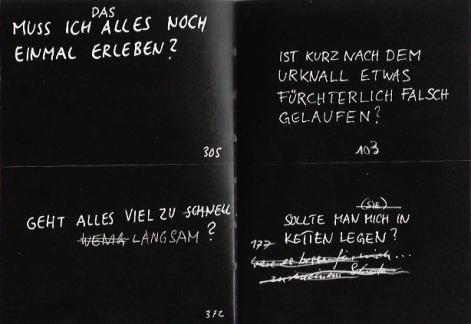 DAS
MUSS ICH ALLES NOCH
EINMAL ERLEBEN?
305
IST KURZ NACH DEM
URKNALL ETWAS
FÜRCHTERLICH FALSCH
GELAUFEN?
103
GEHT ALLES VIEL ZU SCHNELL
LANGSAM?
372
(SIE)
SOLLTE MAN MICH IN
177 KETTEN LEGEN?